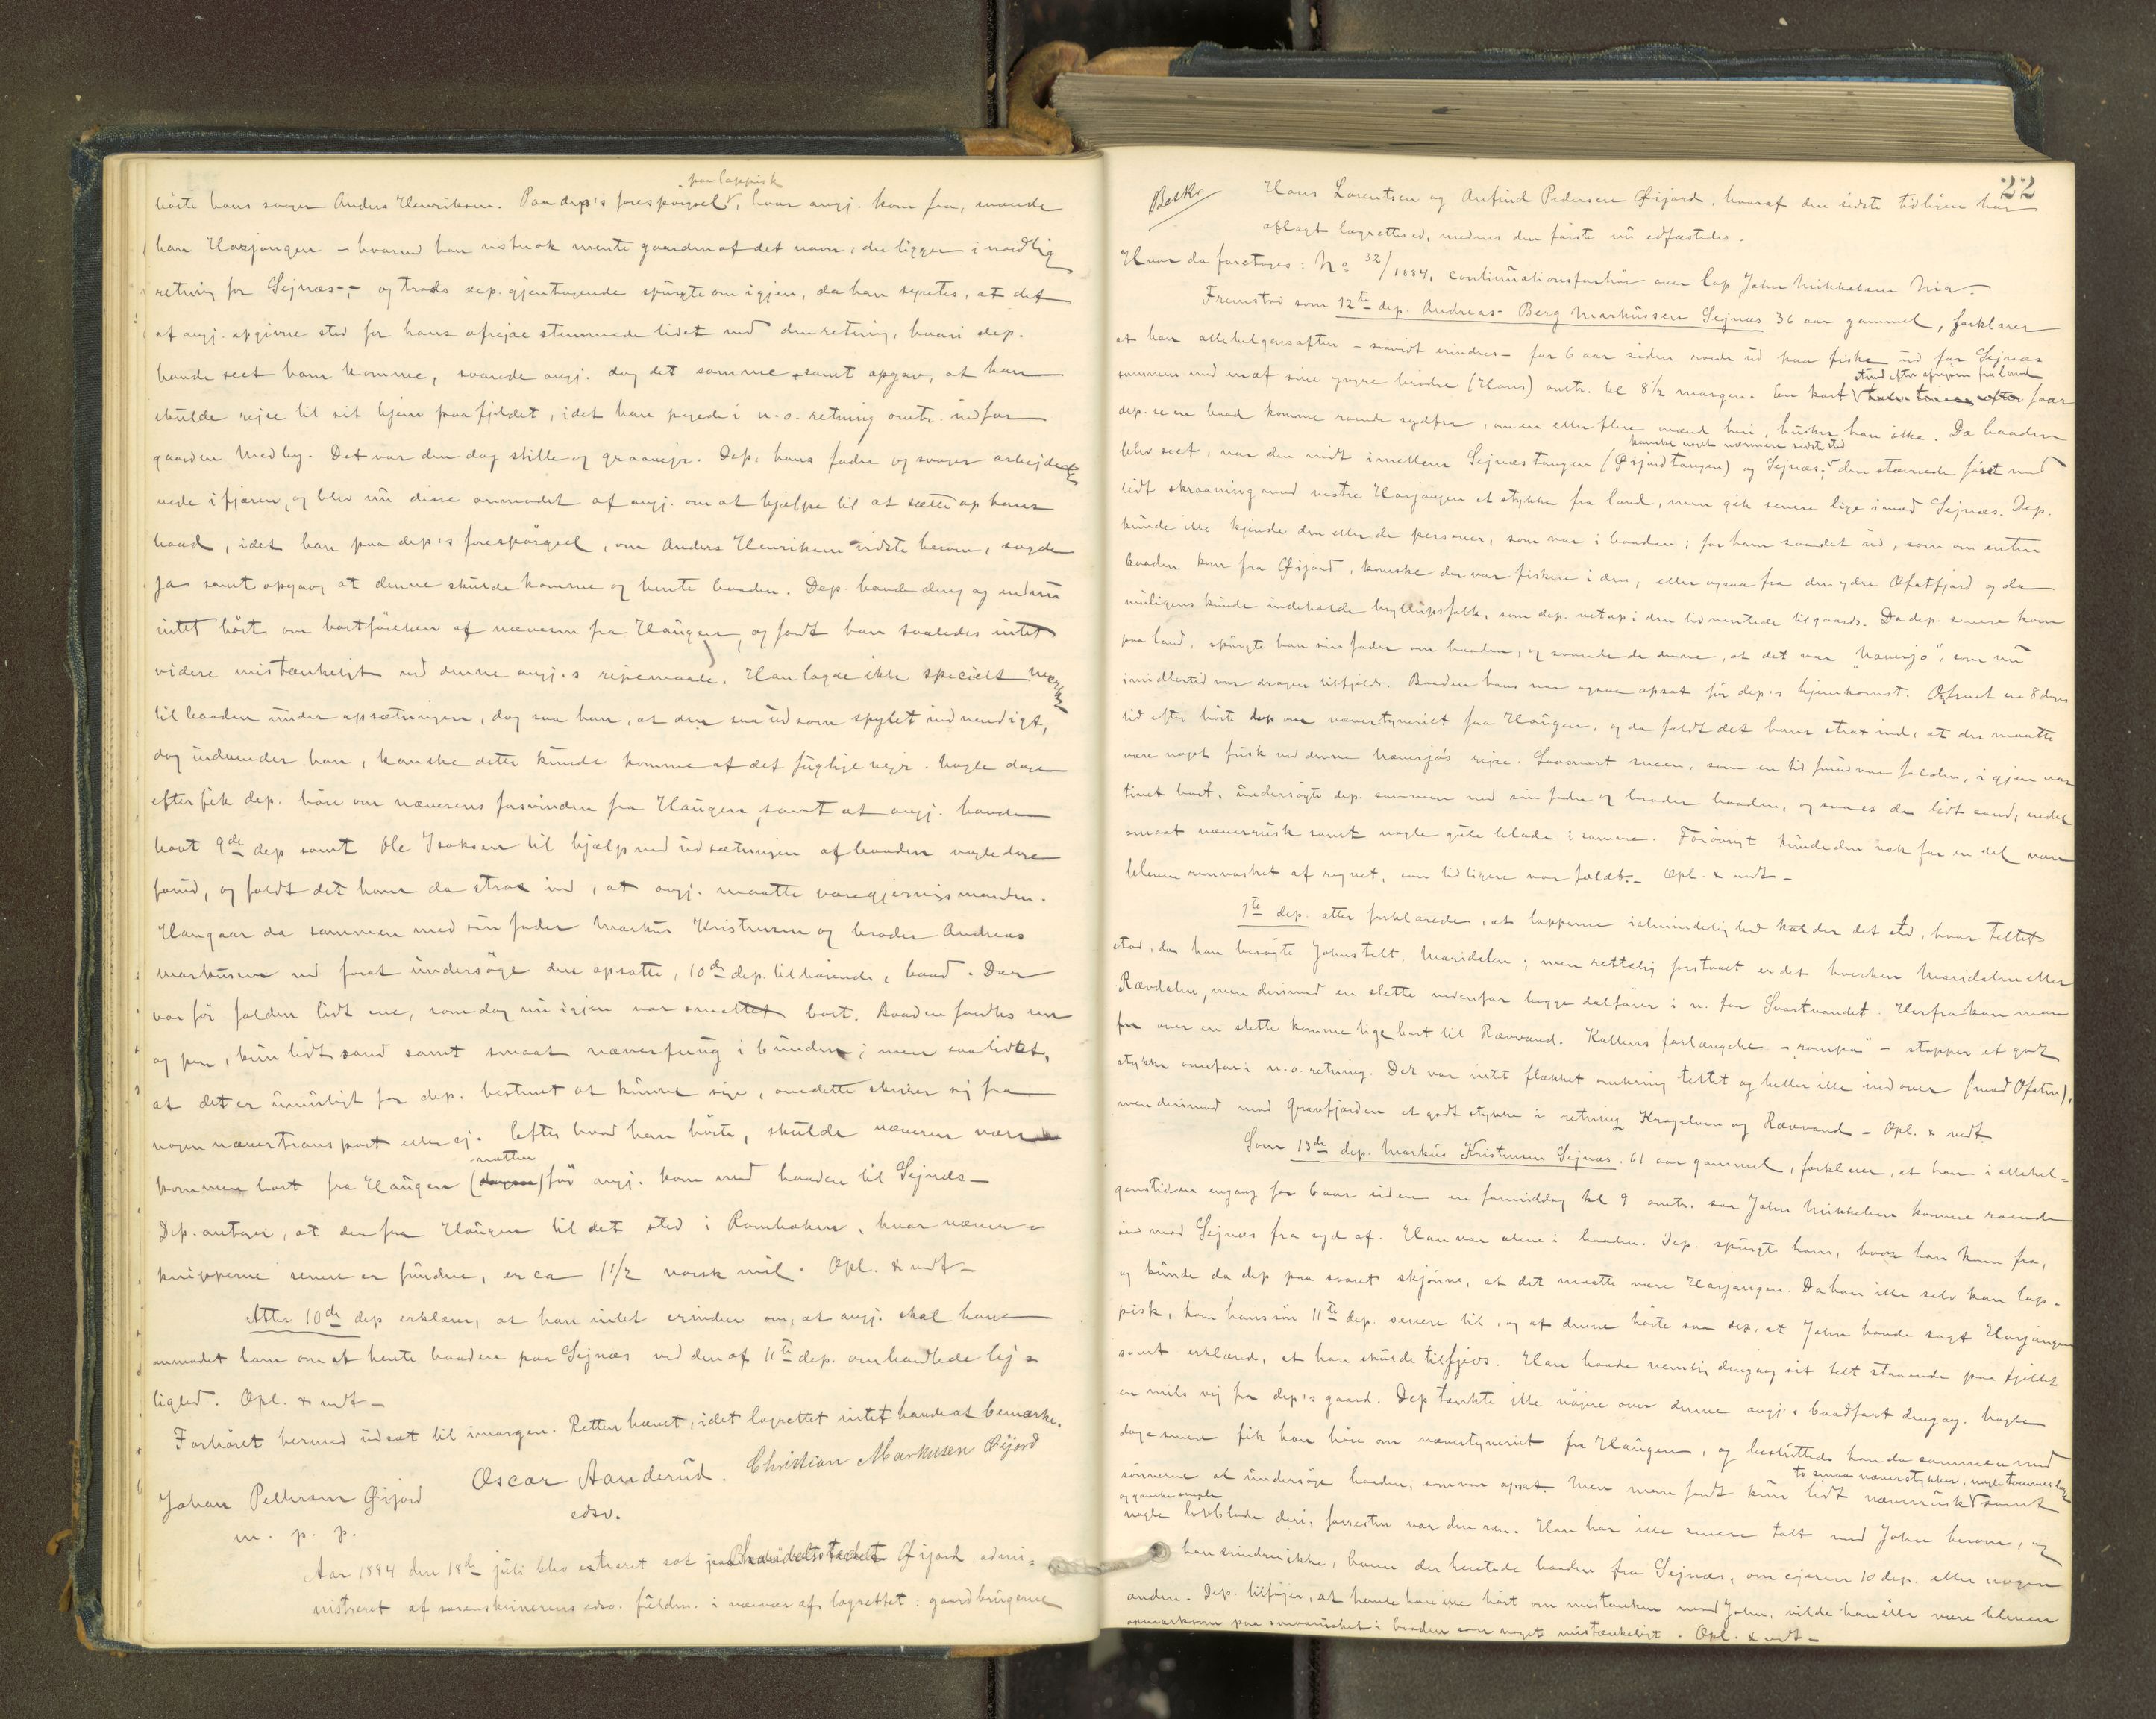 paa lappisk
hörte hans svoger Anders Henriksen. Paa dep's forespørgsel, hvor angj. kom fra, mente
han Harjangen – hvormed han vistnok mente gaarden af det navn, der ligger i nordlig
retning for Sejnæs –, og trods dep. gjentagende spurgte om igjen, da han syntes, at det
af angj. opgivne sted for hans afrejse stemmede lidet med den retning, hvori dep.
havde seet ham komme, svarede angj. dog det samme samt opgav, at han
skulde rejse til sit hjem paa fjeldet, idet han pegede i n.o. retning omtr. indfor
gaarden Medby. Det var den dag stille og graavejr. Dep., hans fader og svoger arbejdede
nede i fjæren, og blev nu disse anmodet af angj. om at hjælpe til at sætte op hans
baad, idet han paa dep's forespørgsel, om Anders Henriksen vidste herom, sagde
ja samt opgav, at denne skulde komme og hente baaden. Dep. havde deng og endnu
intet hört om bortförelsen af næveren fra Haugen, og fandt han saaledes intet
videre mistænkeligt ved denne angj.s rejsemaade. Han lagde ikke specielt mærke
til baaden under opsætningen, dog saa han, at den saa ud som spylet indvendigt,
dog indvender han, kanske dette kunde komme af det fugtige vejr. Nogle dage
efter fik dep. höre om næverens forsvinden fra Haugen, samt at angj. havde
havt 9de dep samt Ole Isaksen til hjælp med udsætningen af baaden nogle dage
forud, og faldt det ham da strax ind, at angj. maatte være gjerningsmanden.
Han gaar da sammen med sin fader Markus Kristensen og broder Andreas
Markusen ned forat undersöge den opsatte, 10de dep. tilhörende, baad. Der
var för falden lidt sne, som dog nu igjen var smeltet bort. Baaden fandtes ren
og pen, kun lidt sand samt smaat næverfnug i bunden; men saa lidet,
at det er umuligt for dep. bestemt at kunne sige, om dette skriver sig fra
nogen nævertransport eller ej. Efter hvad han hörte, skulde næveren være
natten
kommen bort fra Haugen (dagen) för angj. kom med baaden til Sejnæs –
Dep. antager, at der fra Haugen til det sted i Rombaken, hvor næver-
knipperne senere er fundne, er ca 1 1/2 norsk mil. Opl. & vedt –
Atter 10de dep erklærer, at han intet erindrer om, at angj. skal have
anmodet ham om at hente baaden paa Sejnæs ved den af 11te dep. omhandlede lej-
lighed. Opl. & vedt –
Forhöret hermed udsat til imorgen. Retten hævet, idet lagrettet intet havde at bemærke.
Johan Pettersen Øijord
m. p. p.
Oscar Aanderud.
edsv.
Christian Markusen Øijord
Aar 1884 den 18de juli blev extraret sat paa handelsstedet Øijord, admi-
nistreret af sorenskriverens edsv. fuldm. i nærvær af lagrettet: gaardbrugerne
22
Beskr
Hans Lorentsen og Anfind Pedersen Øijord, hvoraf den sidste tidligere har
aflagt lagrettesed, medens den förste nu edfæstedes.
Hvor da foretoges: No 32/1884, Continuationsforhör over lap John Mikkelsen Nia.
Fremstod som 12te dep. Andreas Berg Markussen Sejnæs 36 aar gammel, forklarer
at han allehelgensaften – saavidt erindres – for 6 aar siden roede ud paa fiske ud for Sejnæs
sammen med en af sine yngre brödre (Hans) omtr. kl 8 1/2 morgen. En kort
stund efter afrejsen fra land
faar
dep. se en baad komme roende sydfra, om en eller flere mænd heri, husker han ikke. Da baaden
kanske noget nærmere sidste sted
blev seet, var den midt imellem Sejnæstangen (Øijordtangen) og Sejnæs; den stævnede först med
lidt skraaning mod vestre Harjangen et stykke fra land, men gik senere lige imod Sejnæs. Dep.
kunde ikke kjende den eller de personer, som var i baaden; for ham saa det ud, som om enten
baaden kom fra Øijord, kanske der var fiskere i den, eller ogsaa fra den ydre Ofotfjord og da
muligens kunde indeholde bryllupsfolk, som dep. netop i den tid ventede tilgaards. Da dep. senere kom
paa land, spurgte han sin fader om baaden, og svarede da denne, at det var "Næverjo", som nu
imidlertid var dragen tilfjelds. Baaden hans var ogsaa opsat för dep's hjemkomst. Omtrent en 8 dages
tid efter hörte dep om nævertyveriet fra Haugen, og da faldt det ham strax ind, at der maatte
være noget fusk ved denne Næverjo's rejse. Saasnart sneen, som en tid forud var falden, igjen var
tinet bort, undersögte dep. sammen med sin fader og broder baaden, og saaes der lidt sand, endel
smaat næverrusk samt nogle gule blade i samme. Forövrigt kunde den nok for en del være
bleven renvasket af regnet, som tidligere var faldt. – Opl. & vedt –
1te dep. atter forklarede, at lapperne i almindelighed kalder det sted, hvor teltet
stod, da han besögte Johns telt, Maridalen; men rettelig forstaaet er det hverken Maridalen eller
Rævdalen, men derimod en slette nedenfor begge dalförer i n. for Svartvandet. Herfra kan man
over en slette komme lige bort til Rævvand. Kattens forlængelse – "rompa" – stopper et godt
stykke ovenfor i n.o. retning. Det var intet flækket omkring teltet og heller ikke indover (mod Ofoten),
men derimod mod Gravfjorden et godt stykke i retning Kragelven og Rævvand – Opl. & vedt.
Som 13de dep. Markus Kristensen Sejnæs, 61 aar gammel, forklarer, at han i allehel-
genstiden engang for 6 aar siden en formiddag kl 9 omtr. saa John Mikkelsen komme roende
ind mod Sejnæs fra syd af. Han var alene i baaden. Dep. spurgte ham, hvor han kom fra,
og kunde da dep paa svaret skjönne, at det maatte være Harjangen. Da han ikke selv kan lap-
pisk, kom hans sön 11te dep. senere til, og af denne hörte saa dep, at John havde sagt Harjangen
samt erklæred, at han skulde tilfjelds. Han havde nemlig dengang sit telt staaende paa fjeldet
en mils vej fra dep's gaard. Dep tænkte ikke nöjere over denne angj's baadfart dengang. Nogle
dage senere fik han höre om nævertyveriet fra Haugen, og besluttede han da sammen med
to smaa næverstykker, nogle tommer lange
sönnerne at undersöge baaden, som var opsat. Men man fandt kun lidt næverrusk samt
og ganske smale
nogle lövblade deri, forresten var den ren. Han har ikke senere talt med John herom, og
han erindrer ikke, hvem der hentede baaden fra Sejnæs, om ejeren 10 dep. eller nogen
anden. Dep. tilföjer, at havde han ikke hört om mistanken mod John, vilde han ikke være bleven
opmærksom paa næverrusket i baaden som noget mistænkeligt. Opl. & vedt –